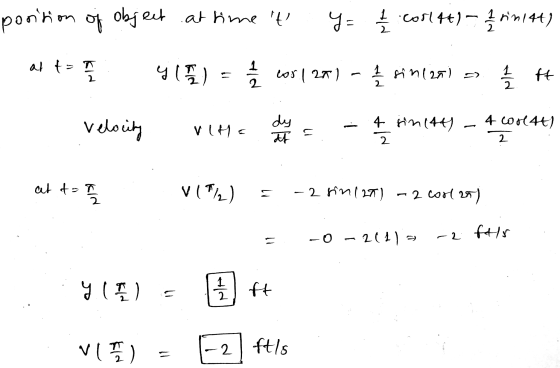 position of object at time 't' y = 1/2 cos(4t) - 1/2 sin(4t)
at t = π/2 y(π/2) = 1/2 cos(2π) - 1/2 sin(2π) ⇒ 1/2 ft
velocity v(t) = dy/dt = - 4/2 sin(4t) - 4 cos(4t)/2
at t = π/2 v(π/2) = -2 sin(2π) - 2 cos(2π)
= -0 - 2(1) ⇒ -2 ft/s
y(π/2) = 1/2 ft
v(π/2) = -2 ft/s